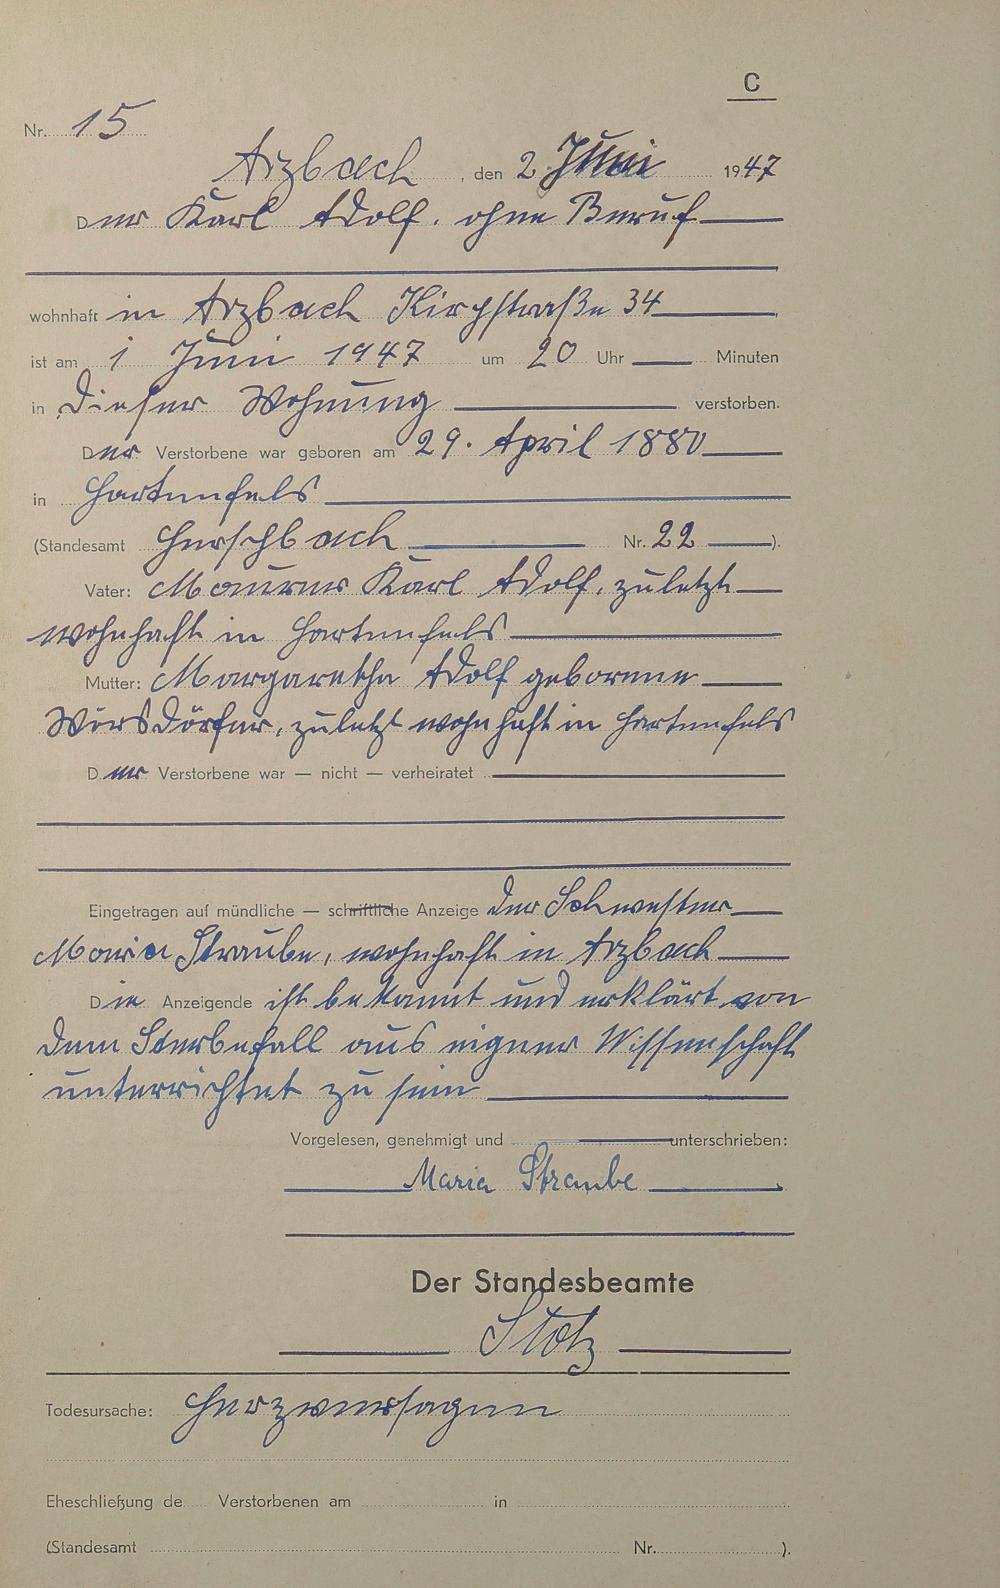 C
Nr. 15
Arzbach, den 2. Juni 1947
Der Karl Adolf. ohne Beruf
wohnhaft in Arzbach Kirchstraße 34
ist am 1 Juni 1947 um 20 Uhr Minuten
in dieser Wohnung verstorben.
Der Verstorbene war geboren am 29. April 1880
in Hartenfels
(Standesamt Herschbach Nr. 22 ).
Vater: Maurer Karl Adolf, zuletzt
wohnhaft in Hartenfels
Mutter: Margaretha Adolf geborene
Wörsdörfer, zuletzt wohnhaft in Hartenfels
Der Verstorbene war — nicht — verheiratet
Eingetragen auf mündliche — schriftliche Anzeige der Schwester
Maria Straube, wohnhaft in Arzbach
Die Anzeigende ist bekannt und erklärt von
dem Sterbefall aus eigener Wissenschaft
unterrichtet zu sein
Vorgelesen, genehmigt und unterschrieben:
Maria Straube
Der Standesbeamte
Stotz
Todesursache: Herzversagen
Eheschließung de Verstorbenen am in
(Standesamt Nr. ).